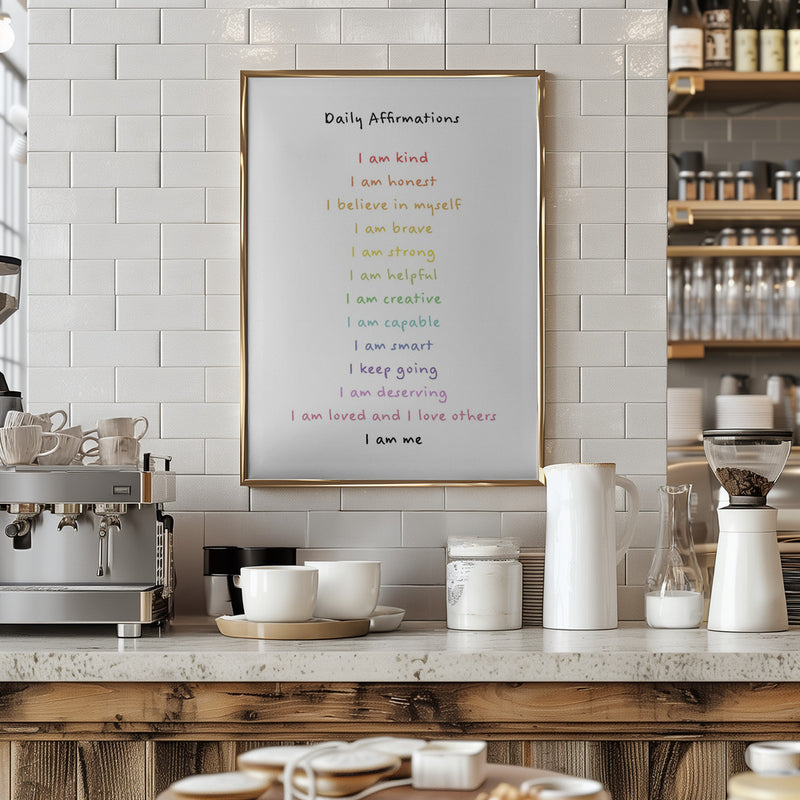 Daily Affirmations
I am kind
I am honest
I believe in myself
I am brave
I am strong
I am helpful
I am creative
I am capable
I am smart
I keep going
I am deserving
I am loved and I love others
I am me